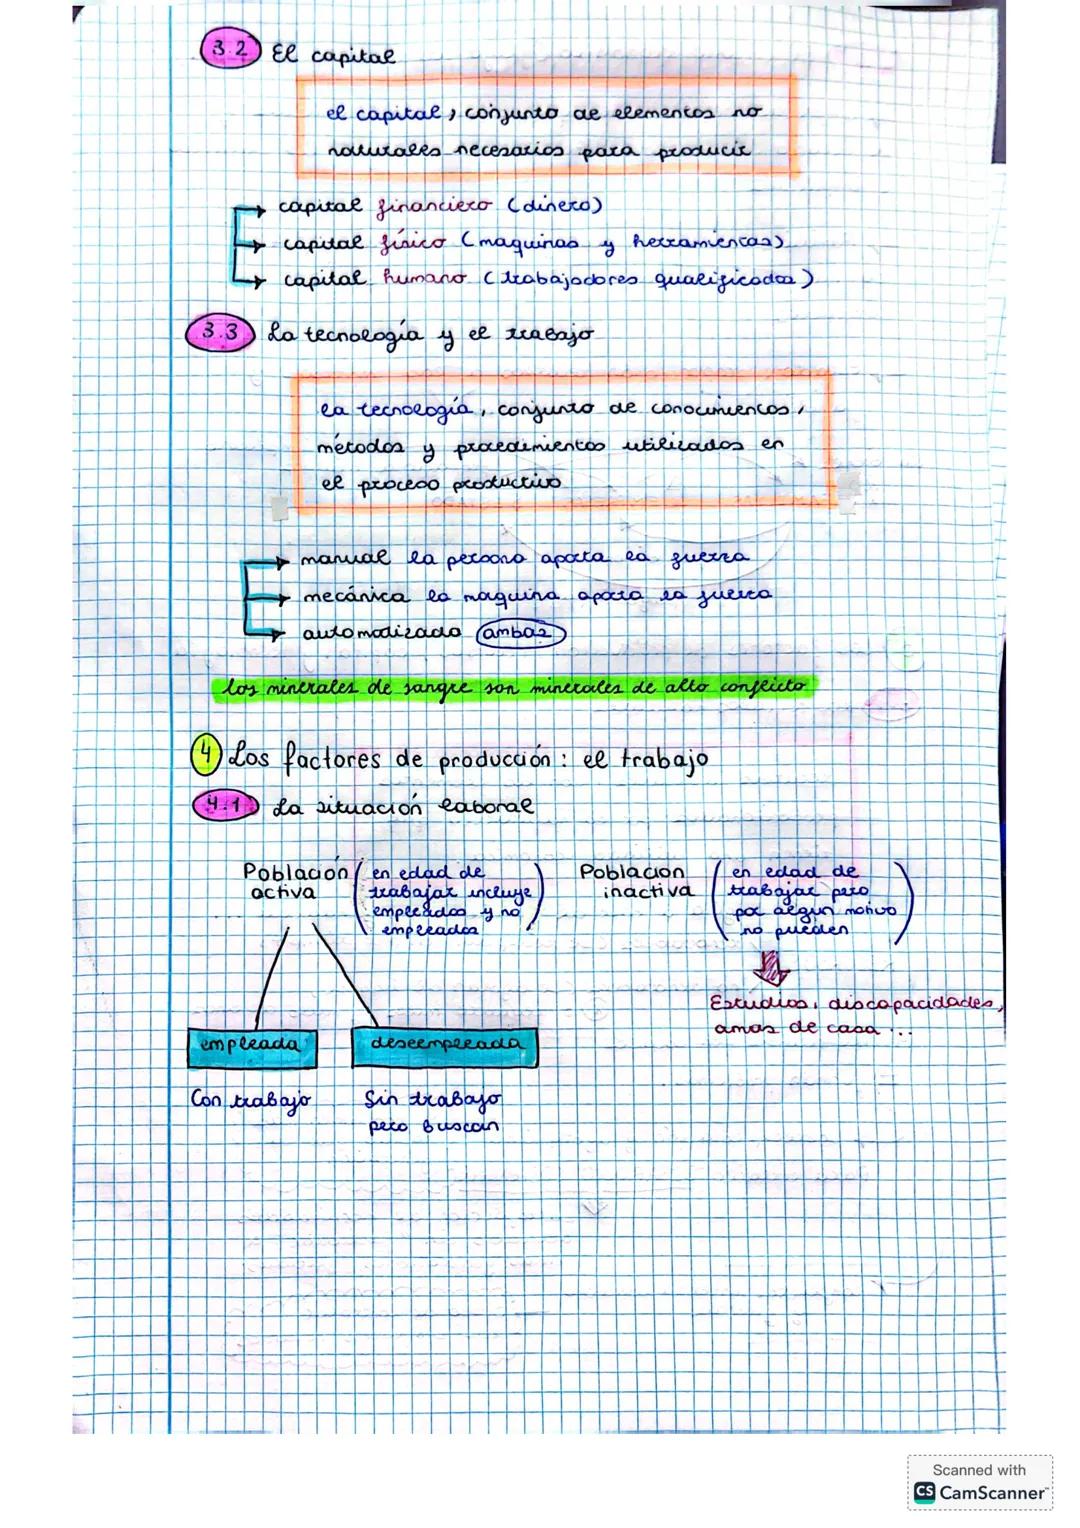 3.2 El capital
el capital, conjunto de elementos no
naturales necesarios para producir
capital financiero (dinero)
capital físico (maquinas y herramientas)
capital humano (trabajadores qualificados)
3.3 La tecnología y el trabajo
la tecnología, conjunto de conocimientos,
métodos y procedimientos utilizados en
el proceso productivo
manual la persona aporta la fuerza
mecánica la maquina aporta la fuerza
automatizado ambas
los minerales de sangre son minerales de alto conflicto
4 Los factores de producción: el trabajo
4.1 La situación laboral
Población activa (en edad de trabajar incluye empleados y no empleados)
Poblacion inactiva (en edad de trabajar pero por algun motivo no pueden)
Estudios, discapacidades,
amas de casa ...
empleada
desempleada
Con trabajo
Sin trabajo
pero buscan
Scanned with
CS CamScanner